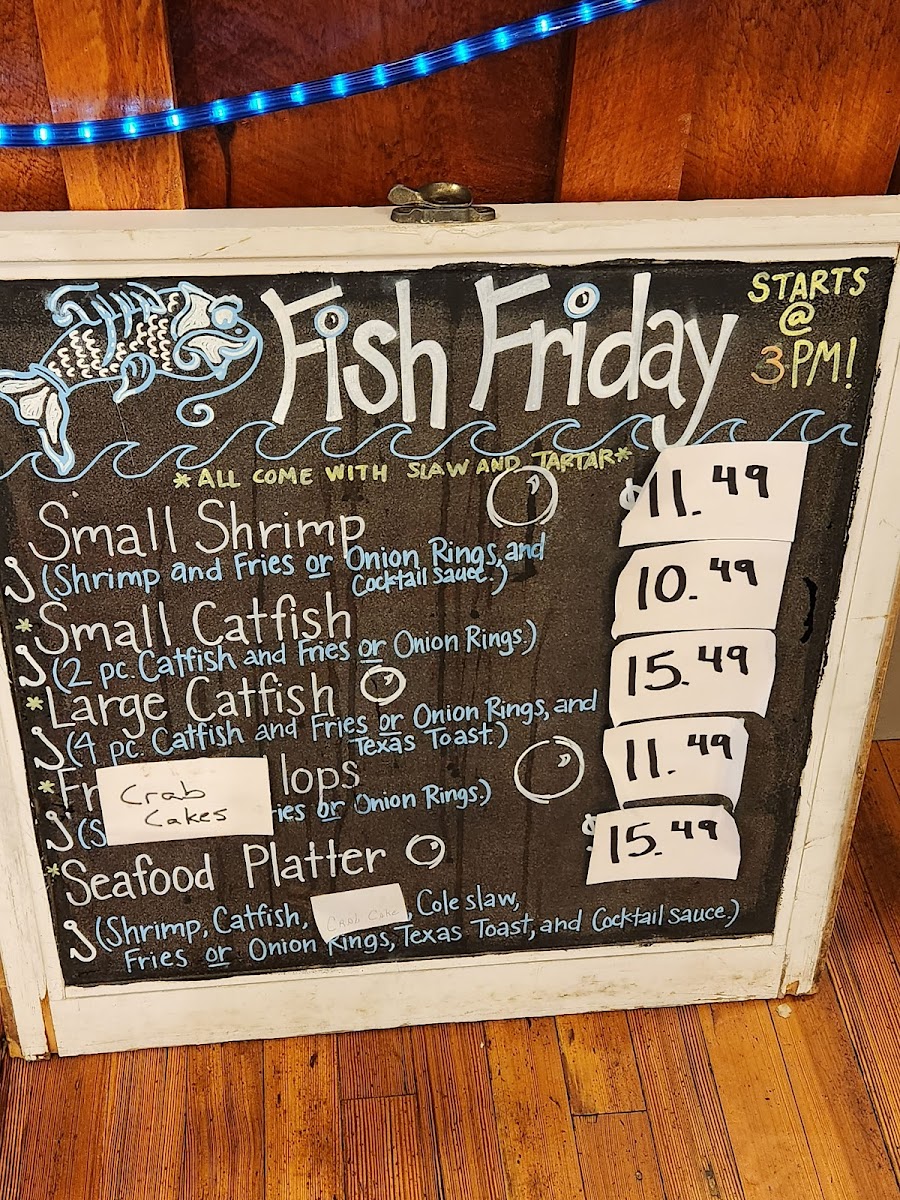 Fish Friday
STARTS
@
3PM!
*ALL COME WITH SLAW AND TARTAR*
Small Shrimp $11.49
(Shrimp and Fries or Onion Rings, and
Cocktail Sauce.)
*Small Catfish 10.49
(2 pc. Catfish and Fries or Onion Rings.)
*Large Catfish 15.49
(4 pc. Catfish and Fries or Onion Rings, and
Texas Toast.)
*Fr Crab Cakes lops 11.49
(S ies or Onion Rings.)
*Seafood Platter $15.49
(Shrimp, Catfish, Crab Cake, Cole slaw,
Fries or Onion Rings, Texas Toast, and Cocktail sauce.)